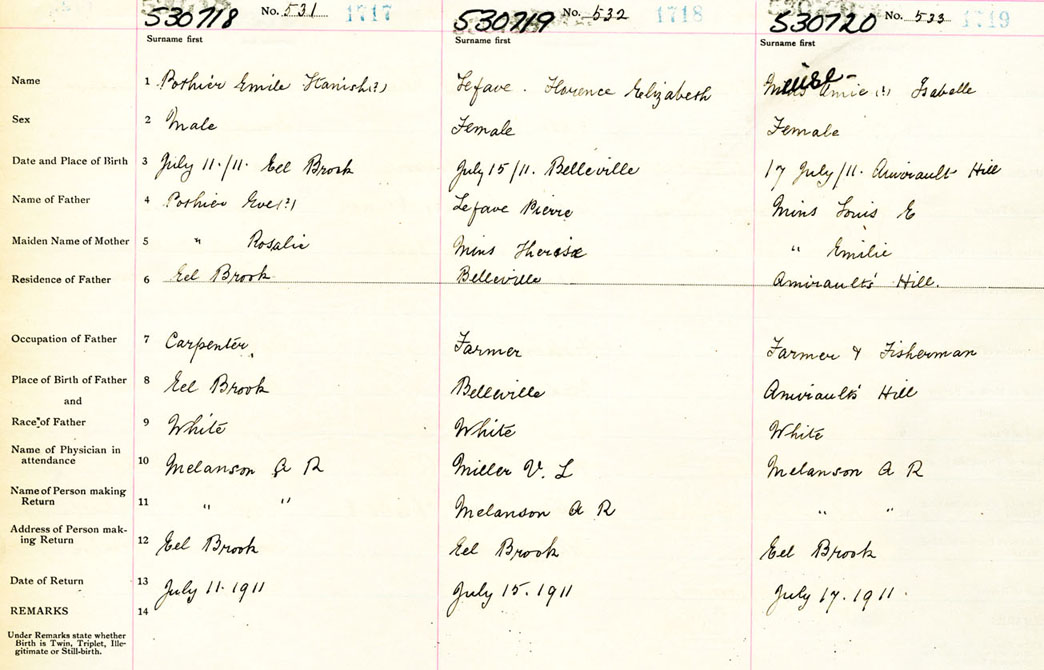 530718 No. 531 1717 530719 No. 532 1718 530720 No. 533 1719
Surname first Surname first Surname first
Name 1 Pothier Emile Stanish(?) Lefave. Florence Elizabeth Mius (?) Isabelle
Sex 2 Male Female Female
Date and Place of Birth 3 July 11./11. Eel Brook July 15/11. Belleville 17 July/11. Amirault Hill
Name of Father 4 Pothier Eve(?) Lefave Pierre Mius Louis E
Maiden Name of Mother 5 " Rosalie Mius Therèse " Emilie
Residence of Father 6 Eel Brook Belleville Amirault's Hill.
Occupation of Father 7 Carpenter Farmer Farmer & Fisherman
Place of Birth of Father 8 Eel Brook Belleville Amirault's Hill
and
Race of Father 9 White White White
Name of Physician in
attendance 10 Melanson A R Miller V. L Melanson A R
Name of Person making
Return 11 " " Melanson A R " "
Address of Person mak-
ing Return 12 Eel Brook Eel Brook Eel Brook
Date of Return 13 July 11. 1911 July 15. 1911 July 17. 1911.
REMARKS 14
Under Remarks state whether
Birth is Twin, Triplet, Ille-
gitimate or Still-birth.